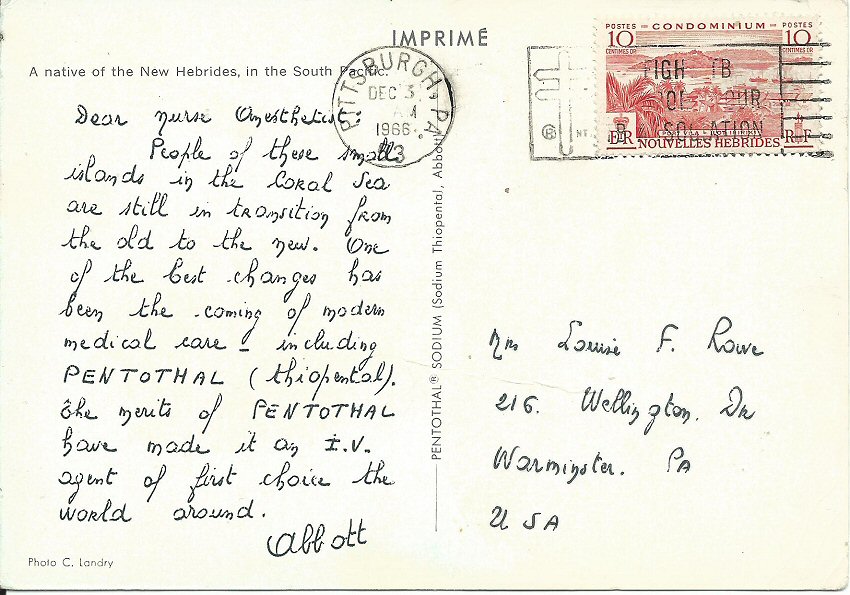 IMPRIMÉ
A native of the New Hebrides, in the South Pacific.
POSTES - CONDOMINIUM - POSTES
10 10
CENTIMES OR CENTIMES OR
ER NOUVELLES HEBRIDES RF
PITTSBURGH, PA.
DEC 3
AM
1966
FIGH TB
Dear Nurse Anesthetist:
People of these small
islands in the Coral Sea
are still in transition from
the old to the new. One
of the best changes has
been the coming of modern
medical care - including
PENTOTHAL (thiopental).
The merits of PENTOTHAL
have made it an I.V.
agent of first choice the
world around.
Abbott
PENTOTHAL® SODIUM (Sodium Thiopental, Abbott
Mrs Louise F. Rowe
216. Wellington. Dr
Warminster. PA
USA
Photo C. Landry